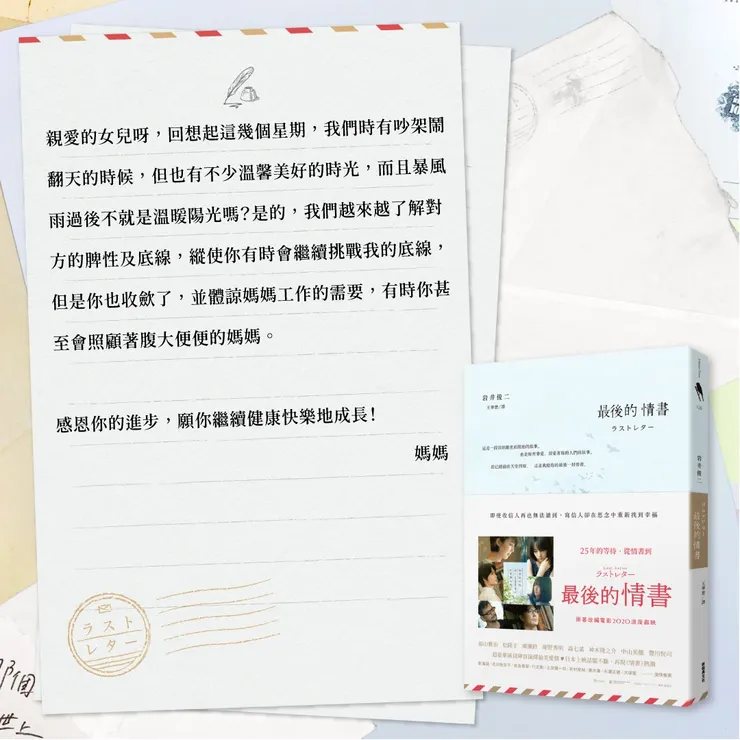 親愛的女兒呀，回想起這幾個星期，我們時有吵架鬧
翻天的時候，但也有不少溫馨美好的時光，而且暴風
雨過後不就是溫暖陽光嗎？是的，我們越來越了解對
方的脾性及底線，縱使你有時會繼續挑戰我的底線，
但是你也收歛了，並體諒媽媽工作的需要，有時你甚
至會照顧著腹大便便的媽媽。
感恩你的進步，願你繼續健康快樂地成長！
媽媽
ラスト
レター
岩井俊二
王華懋/譯
最後的情書
ラストレター
岩井俊二
ラストレター
最後的情書
王華懋/譯
即使收信人再也無法讀到，寫信人卻在思念中重新找到幸福
25年的等待，從情書到
ラストレター
最後的情書
原著改編電影2020浪漫獻映
那個
世上